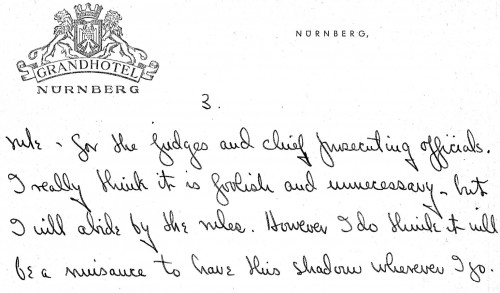 NÜRNBERG,
GRANDHOTEL
NÜRNBERG
3.
rule - for the judges and chief prosecuting officials.
I really think it is foolish and unnecessary - but
I will abide by the rules. However I do think it will
be a nuisance to have this shadow wherever I go.